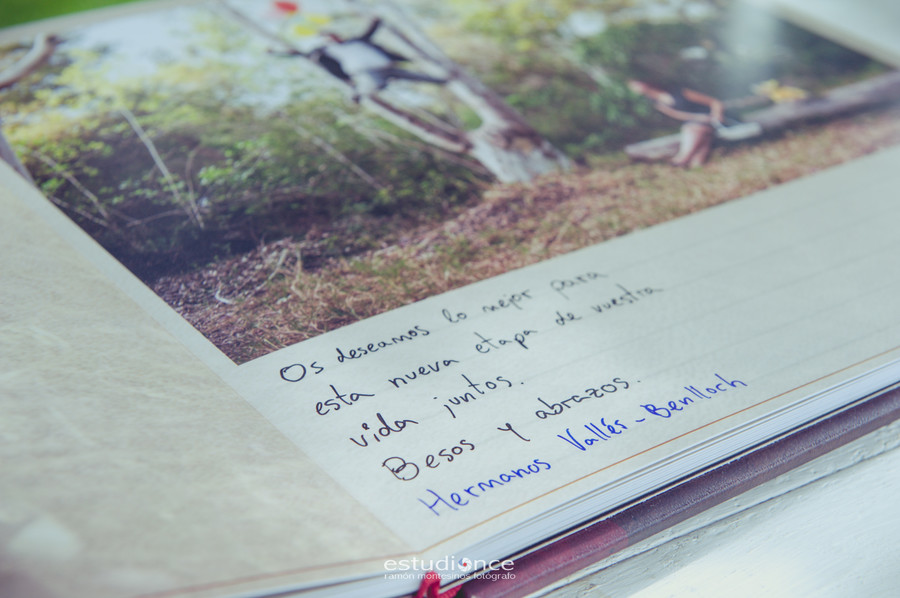 Os deseamos lo mejor para
esta nueva etapa de vuestra
vida juntos.
Besos y abrazos.
Hermanos Vallés-Benlloch
estudionce
ramón montesinos fotógrafo